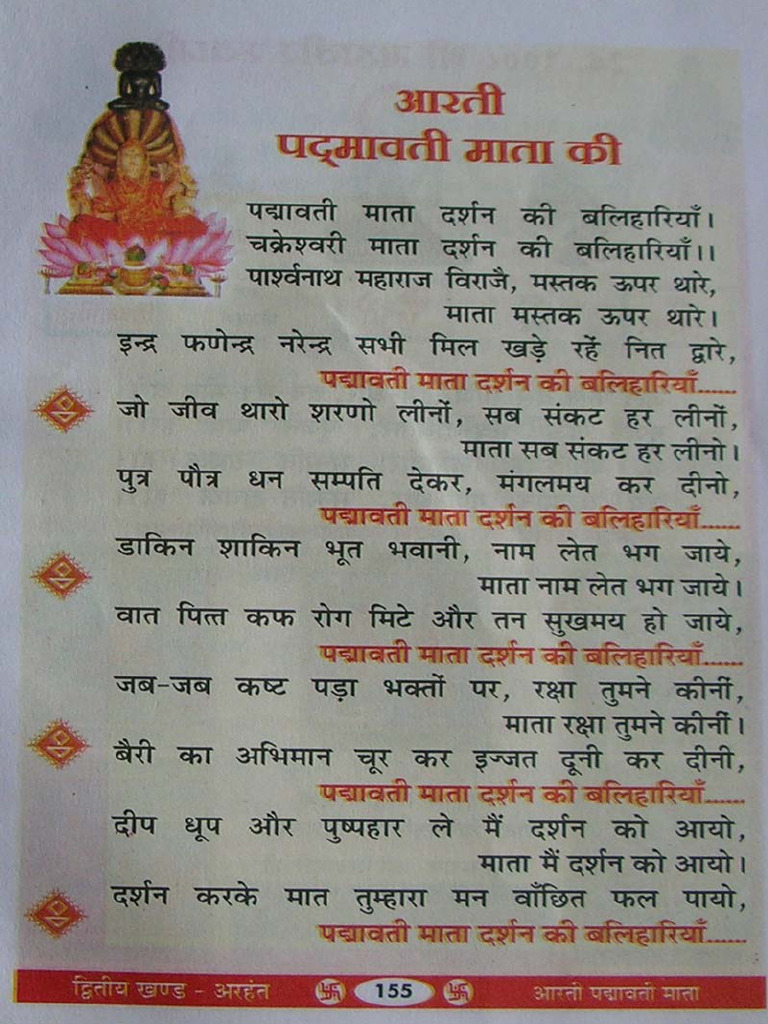 आरती
पद्मावती माता की
पद्मावती माता दर्शन की बलिहारियाँ।
चक्रेश्वरी माता दर्शन की बलिहारियाँ।।
पार्श्वनाथ महाराज विराजै, मस्तक ऊपर थारे,
माता मस्तक ऊपर थारे।
इन्द्र फणेन्द्र नरेन्द्र सभी मिल खड़े रहें नित द्वारे,
पद्मावती माता दर्शन की बलिहारियाँ......
जो जीव थारो शरणो लीनों, सब संकट हर लीनों,
माता सब संकट हर लीनो।
पुत्र पौत्र धन सम्पति देकर, मंगलमय कर दीनो,
पद्मावती माता दर्शन की बलिहारियाँ......
डाकिन शाकिन भूत भवानी, नाम लेत भग जाये,
माता नाम लेत भग जाये।
वात पित्त कफ रोग मिटे और तन सुखमय हो जाये,
पद्मावती माता दर्शन की बलिहारियाँ......
जब-जब कष्ट पड़ा भक्तों पर, रक्षा तुमने कीनीं,
माता रक्षा तुमने कीनीं।
बैरी का अभिमान चूर कर इज्जत दूनी कर दीनी,
पद्मावती माता दर्शन की बलिहारियाँ......
दीप धूप और पुष्पहार ले मैं दर्शन को आयो,
माता मैं दर्शन को आयो।
दर्शन करके मात तुम्हारा मन वाँछित फल पायो,
पद्मावती माता दर्शन की बलिहारियाँ......
द्वितीय खण्ड - अरहंत 155 आरती पद्मावती माता